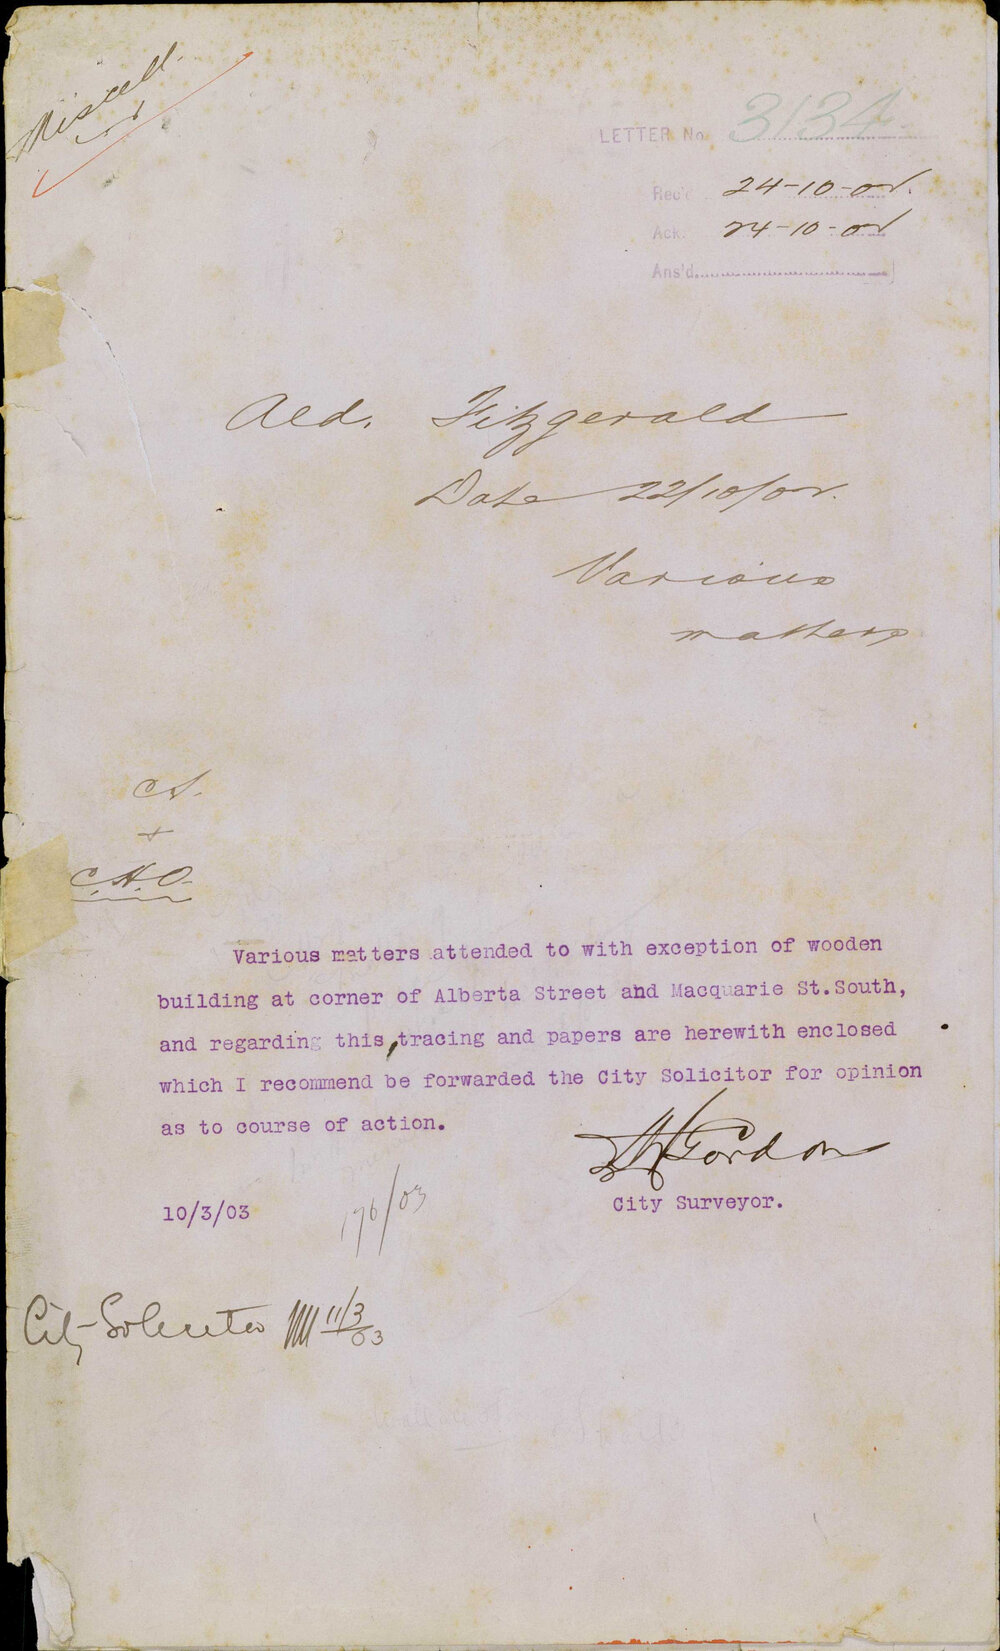 Miscell.
LETTER No. 3134
Rec'd 24-10-02.
Ack. 24-10-02
Ans'd
Ald. Fitzgerald
Date 22/10/02.
Various
matters
C.S.
+
C.H.O.
Various matters attended to with exception of wooden
building at corner of Alberta Street and Macquarie St. South,
and regarding this, tracing and papers are herewith enclosed
which I recommend be forwarded the City Solicitor for opinion
as to course of action.
Gordon
City Surveyor.
10/3/03
176/03
City Solicitor 11/3/03